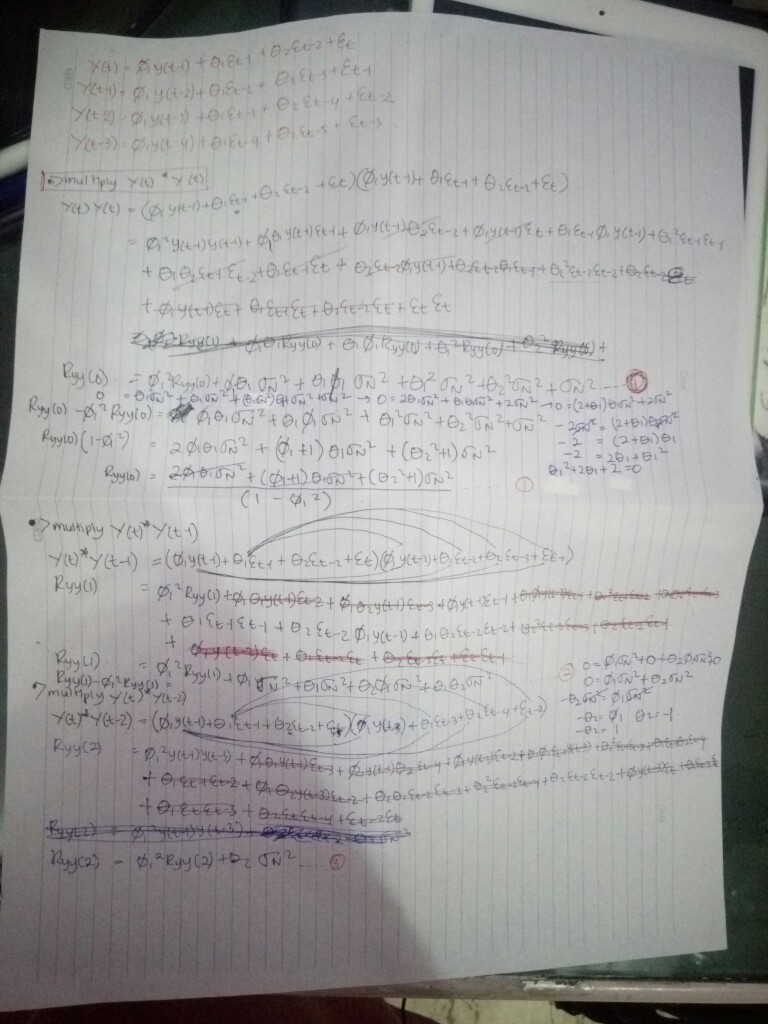 Y(t) = φ₁y(t-1) + θ₁ε_{t-1} + θ₂ε_{t-2} + ε_t
Y(t-1) = φ₁y(t-2) + θ₁ε_{t-2} + θ₂ε_{t-3} + ε_{t-1}
Y(t-2) = φ₁y(t-3) + θ₁ε_{t-3} + θ₂ε_{t-4} + ε_{t-2}
Y(t-3) = φ₁y(t-4) + θ₁ε_{t-4} + θ₂ε_{t-5} + ε_{t-3}
multiply Y(t) * Y(t)
Y(t) Y(t) = (φ₁y(t-1) + θ₁ε_{t-1} + θ₂ε_{t-2} + ε_t)(φ₁y(t-1) + θ₁ε_{t-1} + θ₂ε_{t-2} + ε_t)
= φ₁²y(t-1)y(t-1) + φ₁θ₁y(t-1)ε_{t-1} + φ₁y(t-1)θ₂ε_{t-2} + φ₁y(t-1)ε_t + θ₁ε_{t-1}φ₁y(t-1) + θ₁²ε_{t-1}ε_{t-1}
+ θ₁θ₂ε_{t-1}ε_{t-2} + θ₁ε_{t-1}ε_t + θ₂ε_{t-2}φ₁y(t-1) + θ₂ε_{t-2}θ₁ε_{t-1} + θ₂²ε_{t-2}ε_{t-2} + θ₂ε_{t-2}
+ φ₁y(t-1)ε_t + θ₁ε_{t-1}ε_t + θ₂ε_{t-2}ε_t + ε_t ε_t
Ryy(0) = φ₁²Ryy(0) + φ₁θ₁σN² + θ₁φ₁σN² + θ₁²σN² + θ₂²σN² + σN² ... ①
0 = θ₁σN² + θ₁σN² + → 0 = 2θ₁σN² + θ₁σN² + 2σN² → 0 = (2+θ₁)θ₁σN² + 2σN²
Ryy(0) - φ₁²Ryy(0) = φ₁θ₁σN² + θ₁φ₁σN² + θ₁²σN² + θ₂²σN² + σN² -2σN² = (2+θ₁)θ₁σN²
Ryy(0)(1-φ₁²) = 2φ₁θ₁σN² + (φ₁+1)θ₁σN² + (θ₂²+1)σN² -2 = (2+θ₁)θ₁
-2 = 2θ₁+θ₁²
Ryy(0) = 2φ₁θ₁σN² + (φ₁+1)θ₁σN² + (θ₂²+1)σN² ... ① θ₁²+2θ₁+2=0
(1 - φ₁²)
multiply Y(t)*Y(t-1)
Y(t)*Y(t-1) = (φ₁y(t-1) + θ₁ε_{t-1} + θ₂ε_{t-2} + ε_t)(φ₁y(t-2) + θ₁ε_{t-2} + θ₂ε_{t-3} + ε_{t-1})
Ryy(1) = φ₁²Ryy(1) + φ₁θ₁y(t-1)ε_{t-2} + φ₁θ₂y(t-1)ε_{t-3} + φ₁y(t-1)ε_{t-1} +
+ θ₁ε_{t-1}ε_{t-1} + θ₂ε_{t-2}φ₁y(t-2) + θ₁θ₂ε_{t-2}ε_{t-2} +
+ φ₁y(t-2)ε_t + θ₁ε_{t-2}ε_t + θ₂ε_{t-3}ε_t + ε_tε_{t-1}
Ryy(1) = φ₁²Ryy(1) + φ₁σN² + θ₁σN² + θ₂φ₁σN² + θ₁θ₂σN²
② 0 = φ₁σN² + 0 + θ₂φ₁σN² + 0
Ryy(1) - φ₁²Ryy(1) = 0 = φ₁σN² + θ₂σN²
multiply Y(t)*Y(t-2) -θ₂σN² = φ₁σN²
Y(t)*Y(t-2) = (φ₁y(t-1) + θ₁ε_{t-1} + θ₂ε_{t-2} + ε_t)(φ₁y(t-3) + θ₁ε_{t-3} + θ₂ε_{t-4} + ε_{t-2}) -θ₂ = φ₁ θ₂ = -1
-θ₂ = 1
Ryy(2) = φ₁²y(t-1)y(t-3) + φ₁θ₁y(t-1)ε_{t-3} + φ₁y(t-1)θ₂ε_{t-4} + φ₁y(t-1)ε_{t-2} +
+ θ₁ε_{t-1}ε_{t-2} + φ₁θ₂y(t-3)ε_{t-2} + θ₂θ₁ε_{t-2}ε_{t-3} + θ₂²ε_{t-2}ε_{t-4} + θ₂ε_{t-2}ε_{t-2} + φ₁y(t-3)ε_t +
+ θ₁ε_tε_{t-3} + θ₂ε_tε_{t-4} + ε_{t-2}ε_t
Ryy(2) = φ₁²y(t-1)y(t-3) +
Ryy(2) = φ₁²Ryy(2) + θ₂ σN² .... ③